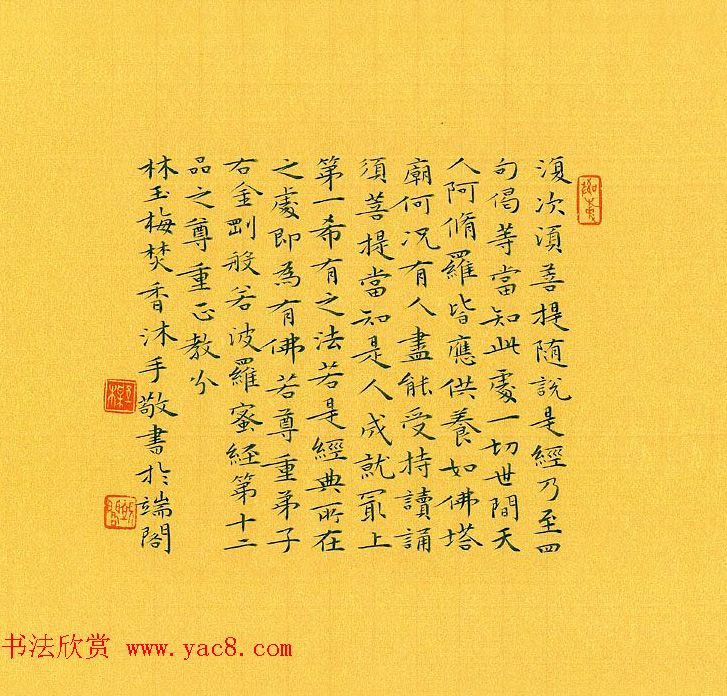 復次須菩提随說是經乃至四
句偈等當知此處一切世間天
人阿脩羅皆應供養如佛塔
廟何况有人盡能受持讀誦
須菩提當知是人成就冣上
第一希有之法若是經典所在
之處即為有佛若尊重弟子
右金剛般若波羅蜜経第十二
品之尊重正教分
林玉梅焚香沐手敬書於端閣
书法欣赏 www.yac8.com